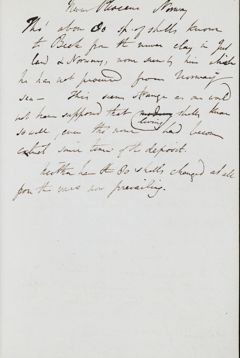 Newer Pliocene Norway
Tho' about 80 sp. of shells known
to Beck from the newer clay in Jut
land & Norway, now seventy him which
he has not procured from Norway
sea — This seems strange as one would
not have supposed that shells there
living
so well, even tho' none had become
extinct since time of the deposit.
Neither has the 80 shells changed at all
from the ones now prevailing.